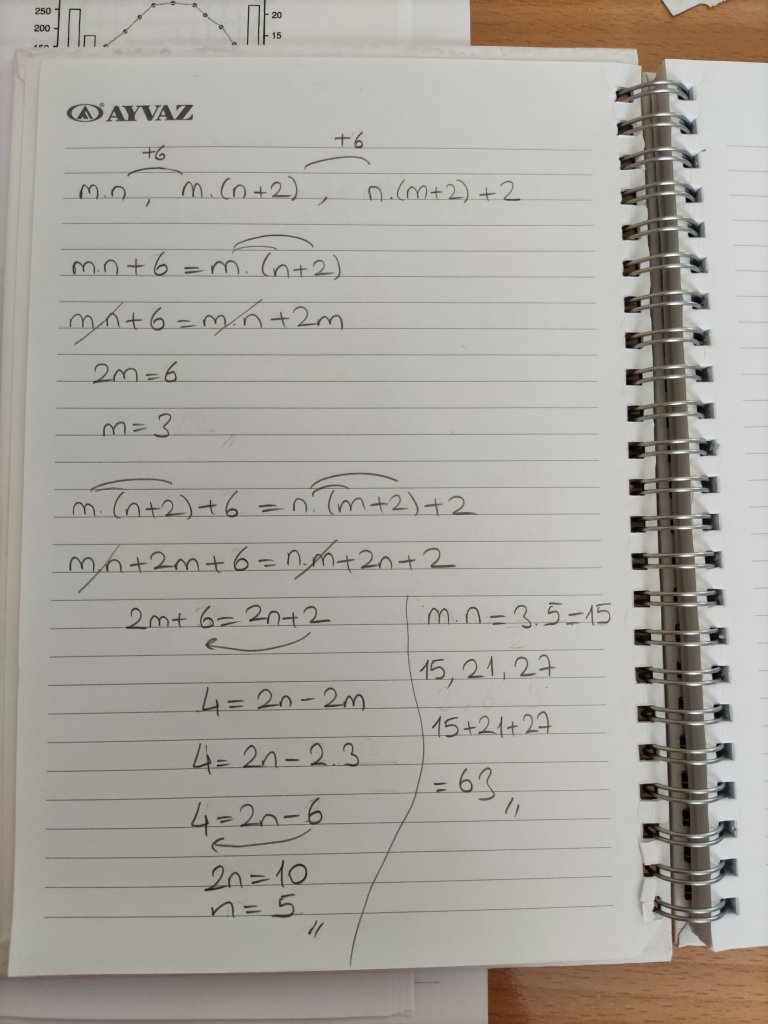 250
200
150
20
15
AYVAZ
+6 +6
m.n , m.(n+2) , n.(m+2)+2
m.n+6 = m.(n+2)
m.n+6 = m.n+2m
2m=6
m=3
m.(n+2)+6 = n.(m+2)+2
m.n+2m+6 = n.m+2n+2
2m+6=2n+2
4=2n-2m
4=2n-2.3
4=2n-6
2n=10
n=5,,
m.n=3.5=15
15, 21, 27
15+21+27
=63,,